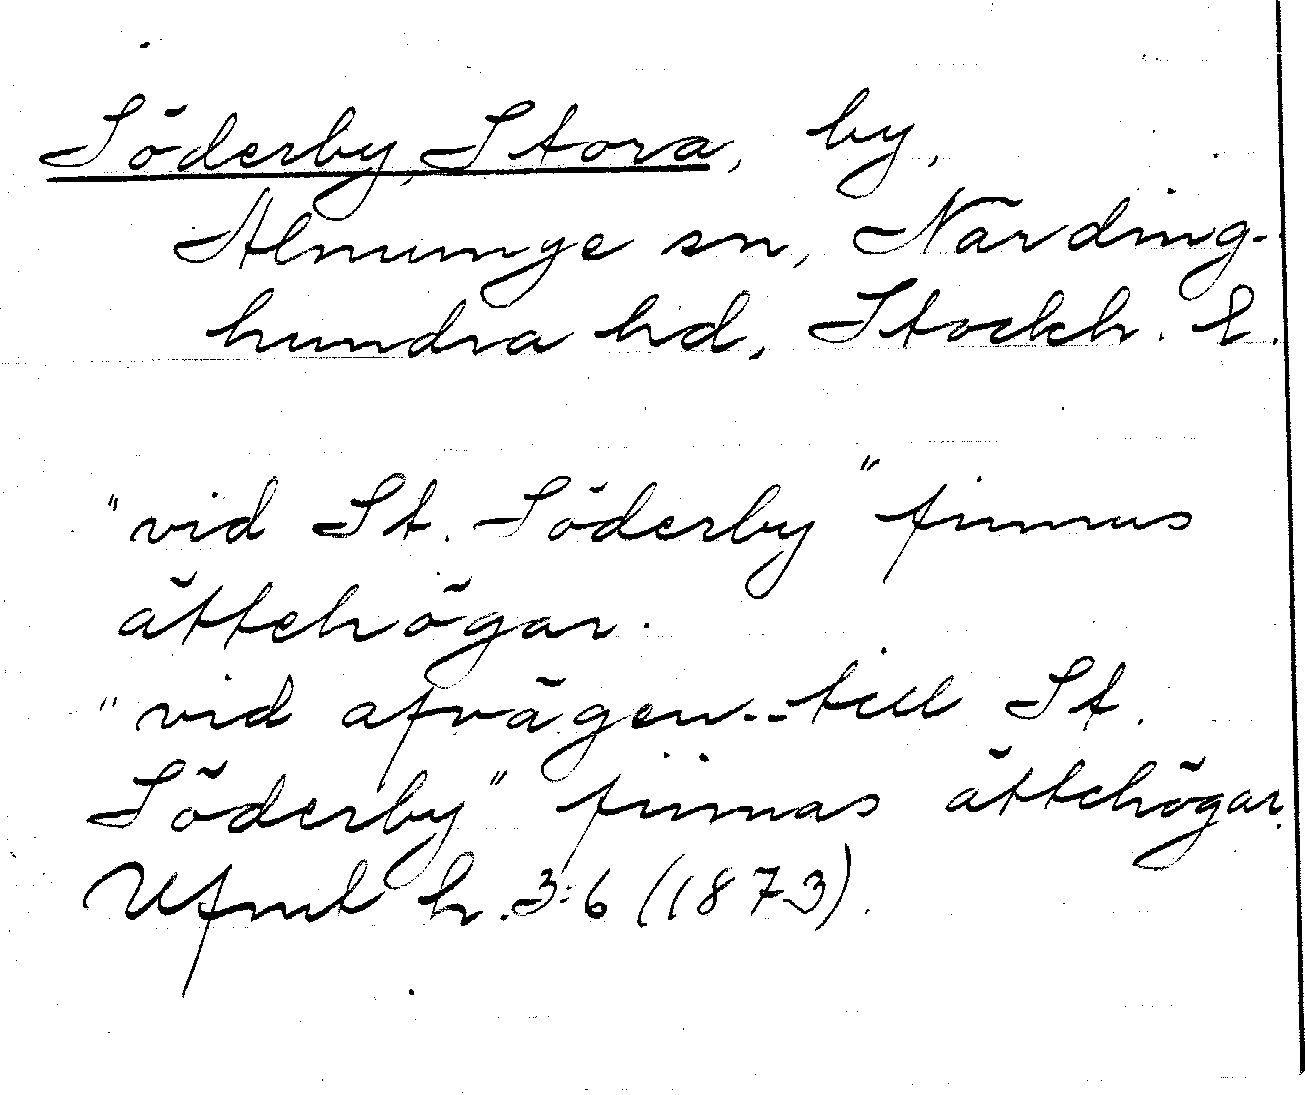 Söderby, Stora, by,
Almunge sn, Närding-
hundra hd, Stockh. l.
"vid St. Söderby" finnas
ättehögar.
"vid afvägen - - till St.
Söderby" finnas ättehögar.
Ufmt h. 3:6 (1873).